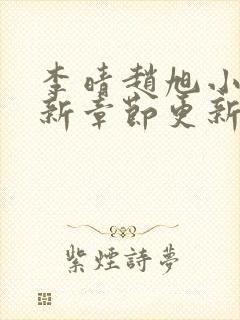 李晴趙旭小
新章節更新
紫煙詩夢